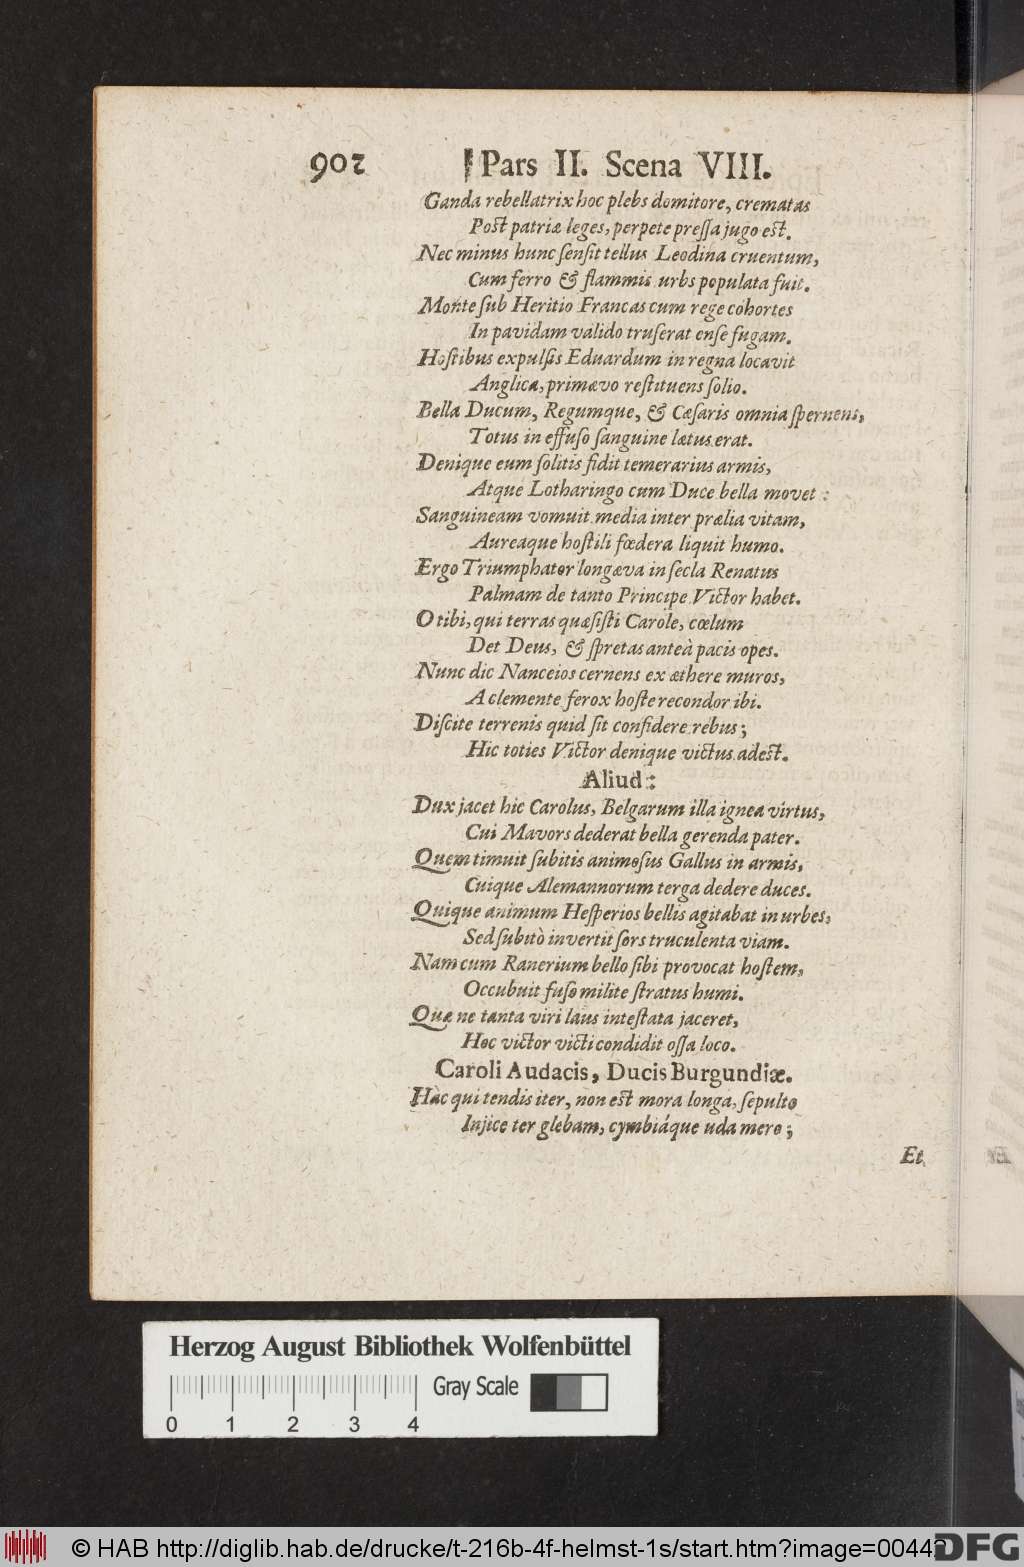 902 Pars II. Scena VIII.
Ganda rebellatrix hoc plebs domitore, crematas
Post patriæ leges, perpete preſſa jugo eſt.
Nec minus hunc ſenſit tellus Leodina cruentum,
Cum ferro & flammis urbs populata fuit.
Monte ſub Heritio Francas cum rege cohortes
In pavidam valido truſerat enſe fugam.
Hoſtibus expulſis Eduardum in regna locavit
Anglica, primævo reſtituens ſolio.
Bella Ducum, Regumque, & Cæſaris omnia ſpernens,
Totus in effuſo ſanguine lætus erat.
Denique eum ſolitis fidit temerarius armis,
Atque Lotharingo cum Duce bella movet:
Sanguineam vomuit media inter prælia vitam,
Aureaque hoſtili fœdera liquit humo.
Ergo Triumphator longæva in ſecla Renatus
Palmam de tanto Principe Victor habet.
O tibi, qui terras quæſiſti Carole, cœlum
Det Deus, & ſpretas anteà pacis opes.
Nunc dic Nanceios cernens ex æthere muros,
A clemente ferox hoſte recondor ibi.
Diſcite terrenis quid ſit confidere rebus;
Hic toties Victor denique victus adeſt.
Aliud:
Dux jacet hic Carolus, Belgarum illa ignea virtus,
Cui Mavors dederat bella gerenda pater.
Quem timuit ſubitis animoſus Gallus in armis,
Cuique Alemannorum terga dedere duces.
Quique animum Heſperios bellis agitabat in urbes,
Sed ſubitò invertit ſors truculenta viam.
Nam cum Ranerium bello ſibi provocat hoſtem,
Occubuit fuſo milite ſtratus humi.
Quæ ne tanta viri laus inteſtata jaceret,
Hoc victor victi condidit oſſa loco.
Caroli Audacis, Ducis Burgundiæ.
Hàc qui tendis iter, non eſt mora longa, ſepulto
Injice ter glebam, cymbiáque uda mero;
Et
Herzog August Bibliothek Wolfenbüttel
Gray Scale
0 1 2 3 4
© HAB http://diglib.hab.de/drucke/t-216b-4f-helmst-1s/start.htm?image=00442
DFG